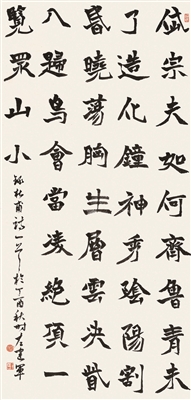 岱宗夫如何齊魯青未
了造化鐘神秀陰陽割
昏曉蕩胸生層雲決眥
入歸鳥會當凌絕頂一
覽眾山小
錄杜甫詩一首於丁酉秋時左建軍